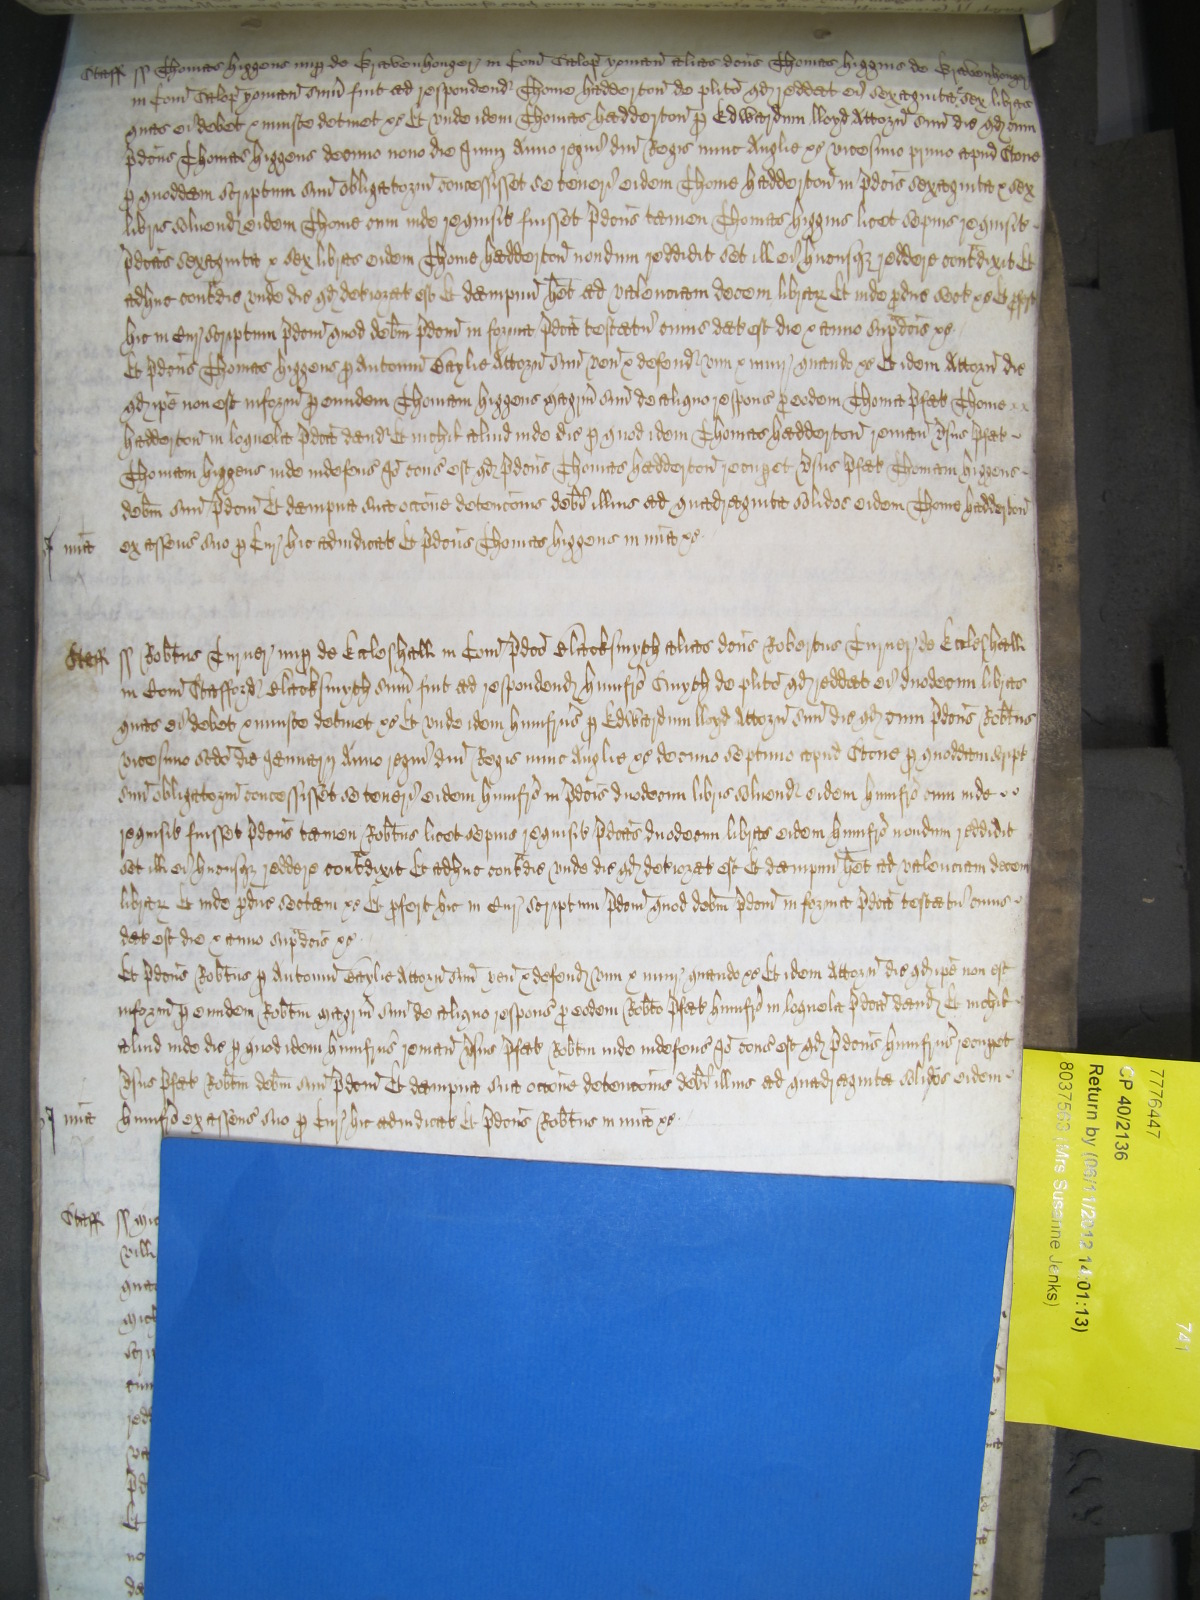 Staff ss Thomas Higgens nup de Gravenhonger in Com Salop yoman alias dcus Thomas Higgins de Gravenhonger
in Com Salop yoman sum fuit ad respondend Thome Hadderton de plito qd reddat ei sexaginta & sex libras
quas ei debet & iniuste detinet &c Et unde idem Thomas Hadderton p Edwardum lloyd Attorn suu dic qd cum
pdcus Thomas Higgens decimo nono die Junij Anno regni dni Regis nunc Anglie &c vicesimo primo apud Stone
p quoddam scriptum suu obligatorm concessisset se teneri eidem Thome Hadderton in pdcis sexaginta & sex
libris solvend eidem Thome cum inde requisit fuisset pdcus tamen Thomas Higgins licet sepius requisit
pdcas sexaginta & sex libras eidem Thome Hadderton nondum reddidit set ill ei hucusq reddere contdixit Et
adhuc contdic unde dic qd deteriorat est Et dampnu het ad valenciam decem librar Et inde pduc sect &c Et pfert
hic in Cur scriptum pdcm quod debm pdcm in forma pdca testatr cuius dat est die & anno supdcis &c
Et pdcus Thomas Higgens p Antoniu Baylie Attorn suu ven & defend vim & iniur quando &c Et idem Attorn dic
qd ipe non est informat p eundem Thomam Higgens magrm suu de aliquo respons p eodem Thoma pfat Thome
Hadderton in loquela pdca dand Et nichil aliud inde dic p quod idem Thomas Hadderton reman vsus pfat
Thomam Higgens inde indefens Io cons est qd pdcus Thomas Hadderton recupet vsus pfat Thomam Higgens
debm suu pdcm Et dampna sua occone detencois debi illius ad quadraginta solidos eidem Thome Hadderton
mia ex assensu suo p Cur hic adiudicat Et pdcus Thomas Higgens in mia &c
Staff ss Robtus Turner nup de Eccleshall in Com pdco Blacksmyth alias dcus Robertus Turner de Eccleshall
in Com Stafford Blacksmyth sum fuit ad respondend Humfro Smyth de plito qd reddat ei duodecim libras
quas ei debet & iniuste detinet &c Et unde idem Humfrus p Edwardum lloyd Attorn suu dic qd cum pdcus Robtus
vicesimo scdo die Januarij Anno regni dni Regis nunc Anglie &c decimo septimo apud Stone p quoddam script
suu obligatorm concessisset se teneri eidem Humfro in pdcis duodecim libris solvend eidem Humfro cum inde
requisit fuisset pdcus tamen Robtus licet sepius requisit pdcas duodecim libras eidem Humfro nondum reddidit
set ill ei hucusq reddere contdixit Et adhuc contdic unde dic qd deteriorat est Et dampnu het ad valenciam decem
librar Et inde pduc sectam &c Et pfert hic in Cur scriptum pdcm quod debm pdcm in forma pdca testatr cuius
dat est die & anno supdcis &c
Et pdcus Robtus p Antoniu Baylie Attorn suu ven & defend vim & iniur quando &c Et idem Attorn dic qd ipe non est
informat p eundem Robtm magrm suu de aliquo respons p eodem Robto pfat Humfro in loquela pdca dand Et nichil
aliud inde dic p quod idem Humfrus reman vsus pfat Robtm inde indefens Io cons est qd pdcus Humfrus recupet
vsus pfat Robtm debm suu pdcm Et dampna sua occone detencois debi illius ad quadraginta solidos eidem
mia Humfro ex assensu suo p Cur hic adiudicat Et pdcus Robtus in mia &c
Staff ss Mic
7776447
741
CP 40/2136
Return by (06/11/2012 14:01:13)
8037563 (Mrs Susanne Jenks)